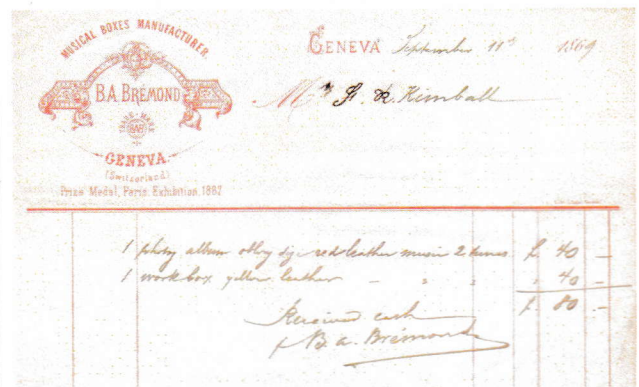 MUSICAL BOXES MANUFACTURER.
B.A. BRÉMOND
TRADE MARK
BAB
GENEVA.
(Switzerland)
Prize Medal, Paris Exhibition, 1867
GENEVA September 11th 1869
Mr Kimball
1 album red leather music 2 tunes f. 40 –
1 work box yellow leather – " " " 40 –
f. 80 –
Received cash
B. A. Brémond